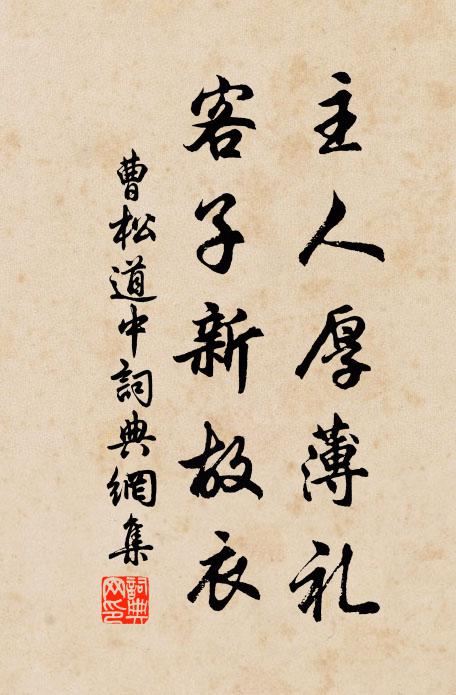 主人厚薄礼
客子新故衣
曹松道中詞典網集
詞典网印